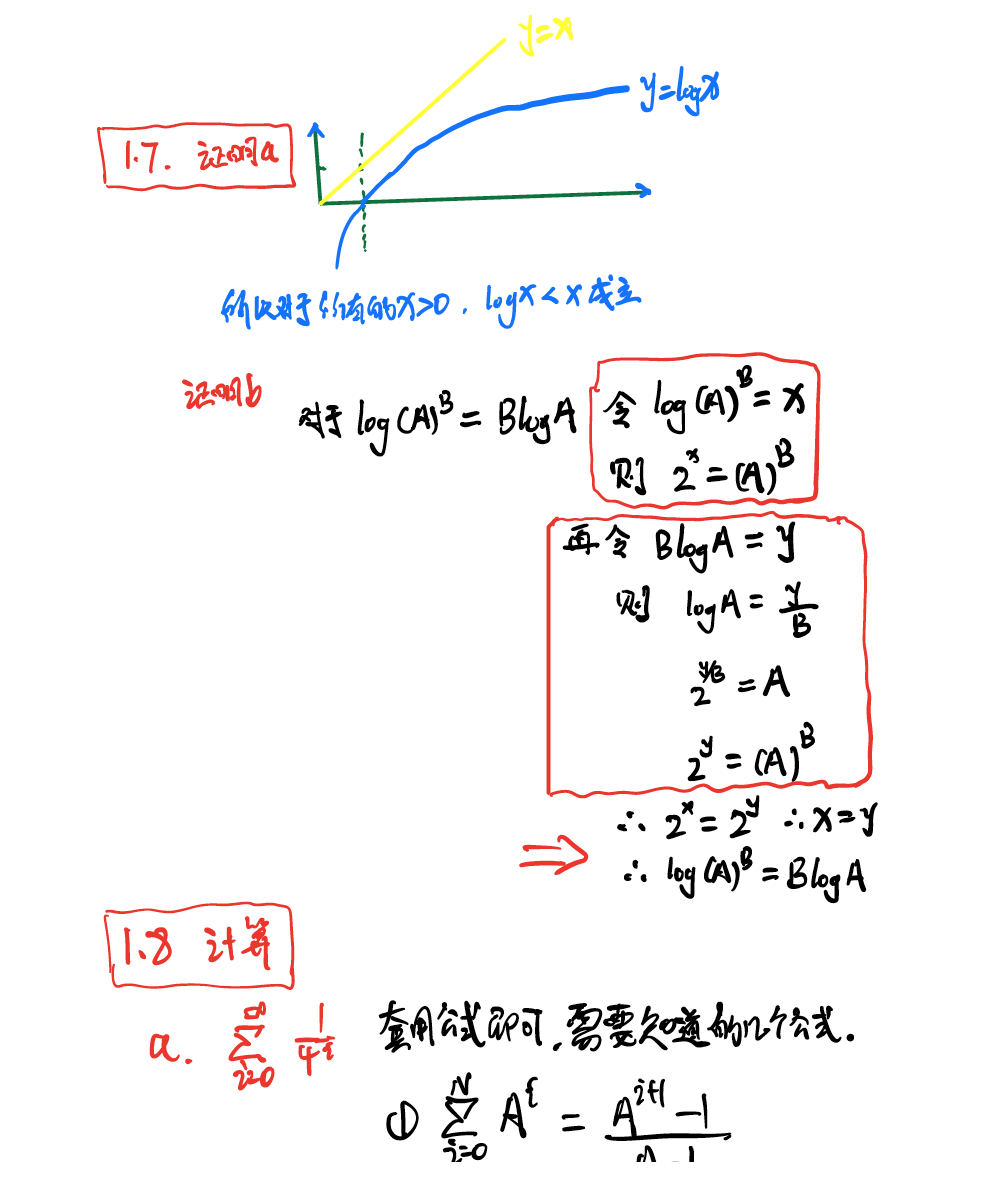 y=x
y=logx
1.7. 证明a
所以对于所有的x>0, logx<x成立
证明b
对于 log(A)^B = BlogA
令 log(A)^B = x
则 2^x = (A)^B
再令 BlogA = y
则 logA = y/B
2^{y/B} = A
2^y = (A)^B
∴ 2^x = 2^y ∴ x=y
⇒ ∴ log(A)^B = BlogA
1.8 计算
a. ∑_{i=0}^{∞} 1/4^i 套用公式即可,需要知道的几个公式.
① ∑_{i=0}^{N} A^i = (A^{i+1} - 1)/(A-1)